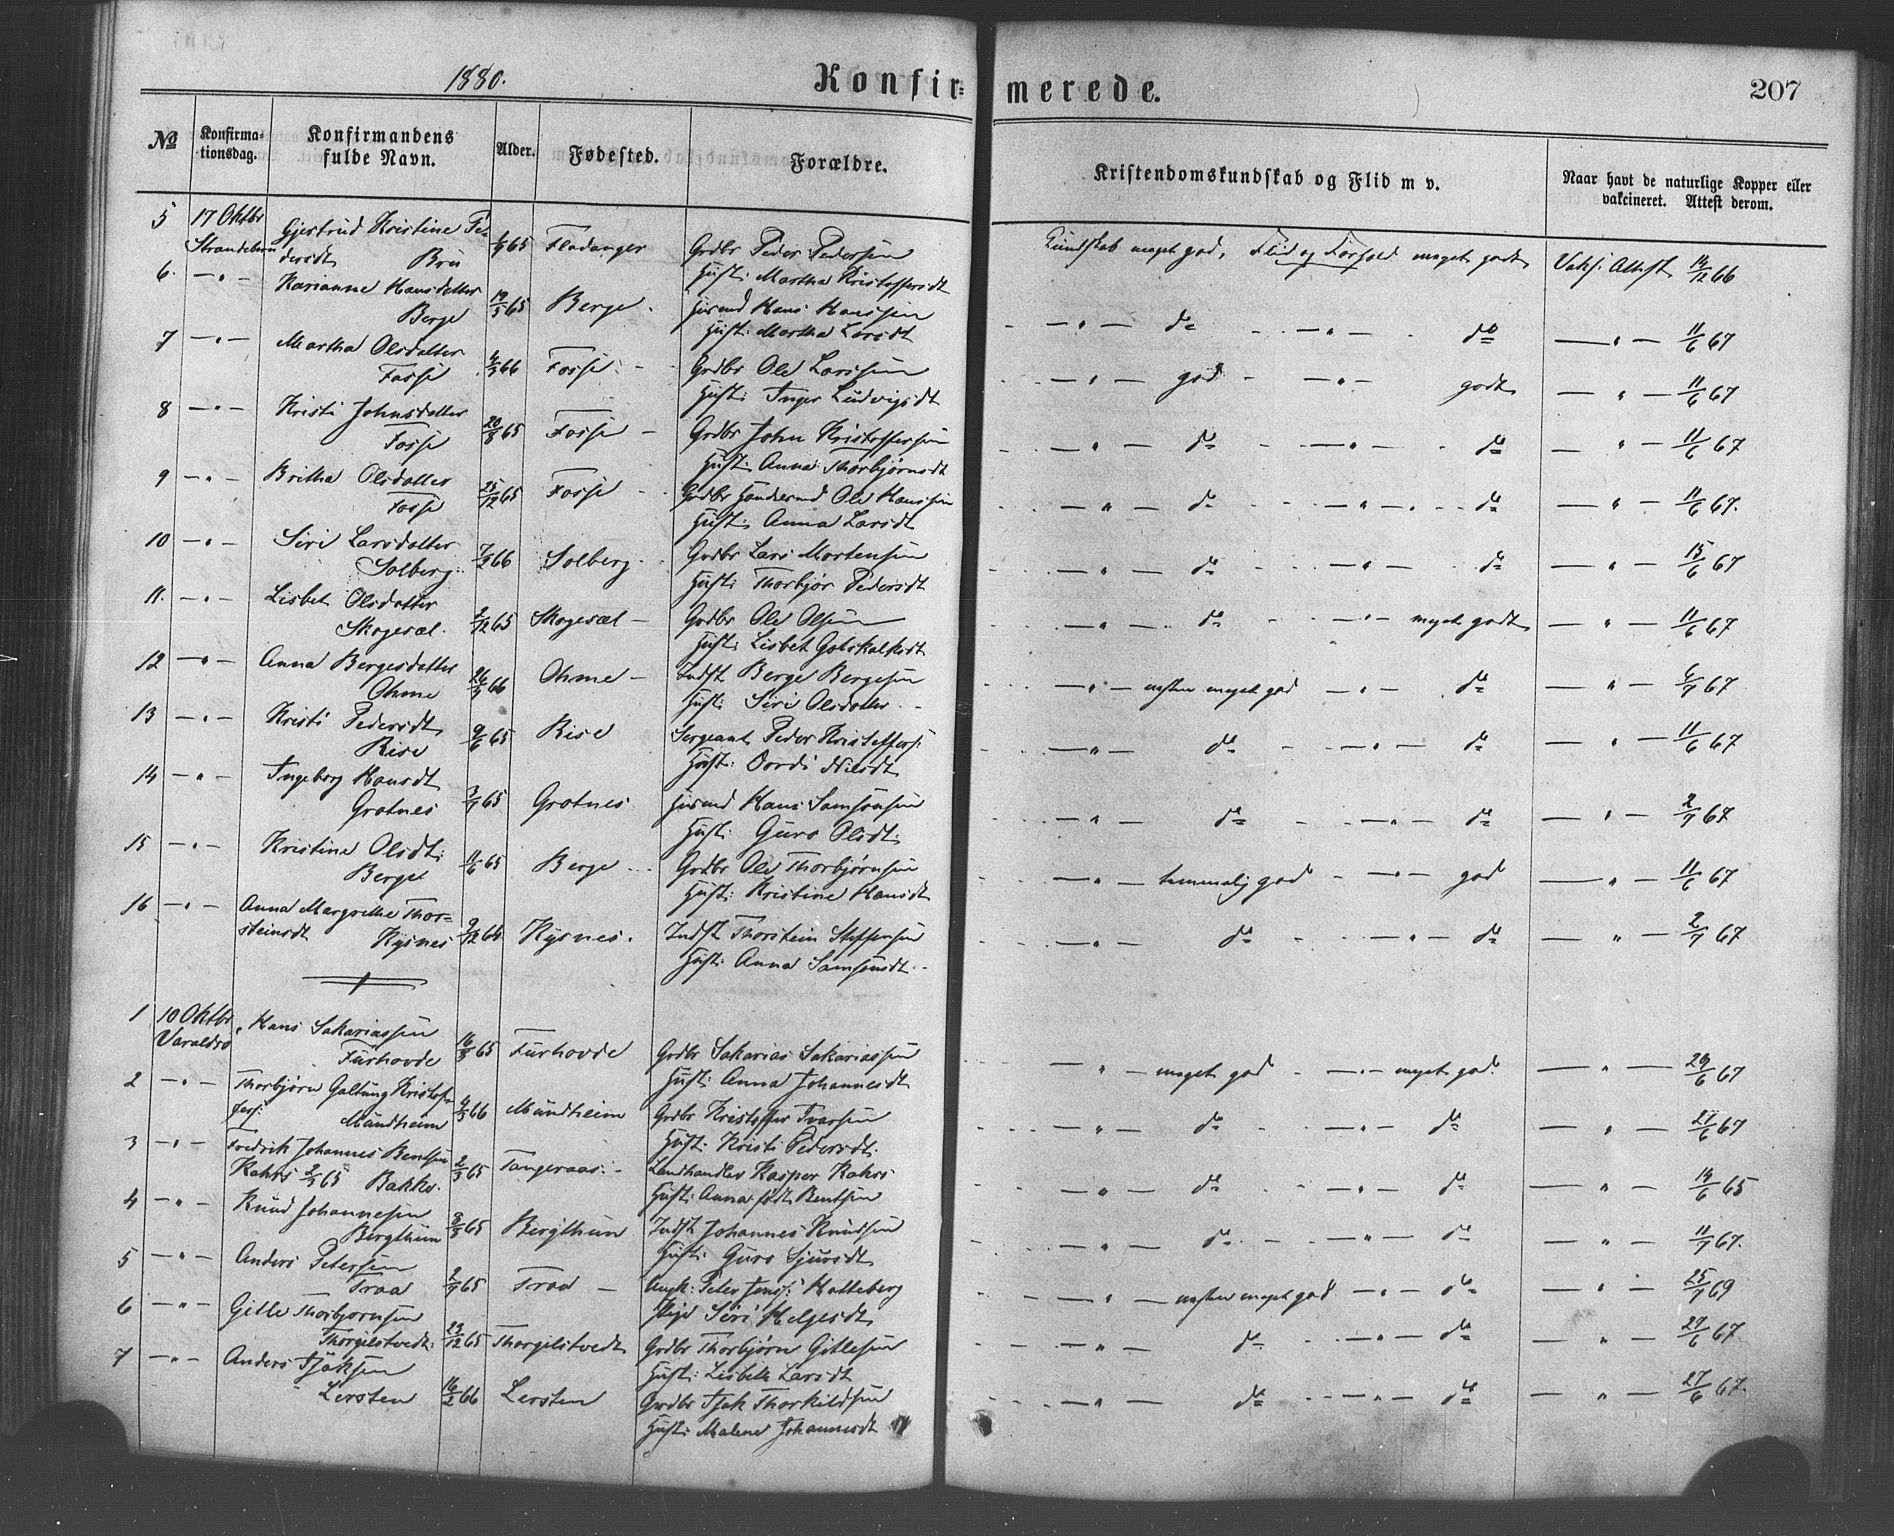 1880.
Konfir=
merede.
207
No
Konfirma-
tionsdag.
Konfirmandens
fulde Navn.
Alder.
Fødested.
Forældre.
Kristendomskundskab og Flid m v.
Naar havt de naturlige Kopper eller
vakcineret. Attest derom.
5 17 Oktbr Gjertrud Kristine Pe-
Strandebarm dersdt Bru 65 Fladanger Grdbr Peder Pedersen
Hust: Martha Kristoffersdt
Kundskab meget god, Flid og Forhold meget godt Vaks: Attest 14/12 66
6. —"— Marianne Hansdatter
Berge 19/5 65 Berge. Husmd Hans Hanssen
Hust: Martha Larsdt
—"— do —"— do —"— 11/6 67
7 —"— Martha Olsdatter
Fosse 66 Fosse Grdbr Ole Larssen
Hust: Inger Ludvigsdt
—"— god —"— godt —"— 11/6 67
8 —"— Kristi Johnsdatter
Fosse 20/8 65 Fosse — Grdbr John Kristoffersen
Hust: Anna Thorbjørnsdt
—"— do —"— do —"— 11/6 67
9 —"— Britha Olsdatter
Fosse 25/12 65 Fosse Grdbr Ole Hanssen
Hust: Anna Larsdt
—"— do —"— do —"— 11/6 67.
10 —"— Siri Larsdatter
Solberg. 66 Solberg. Grdbr Lars Mortensen
Hust: Thorbjør Pedersdt
—"— do —"— do —"— 15/6 67
11. —"— Lisbet Olsdatter
Skogesæl. 2/12 65 Skogesæl — Grdbr Ole Olsen
Hust: Lisbet Gotskalksdt
—"— do —"— meget godt —"— 11/6 67
12 —"— Anna Bergesdatter
Ohme 66 Ohme — Indst Berge Bergesen
Hust: Siri Olsdatter
—"— næsten meget god —"— do —"— 67
13 —"— Kristi Pedersdt
Rise 9/6 65 Rise Sergeant Peder Kristoffers:
Hust: Nilsdt
—"— do —"— do —"— 11/6 67
14 —"— Ingeborg Hansdt
Grotnes 65 Grotnes Husmd Hans Samsonsen
Hust: Guro Olsdt:
—"— do —"— do —"— 2/7 67
15 —"— Kristine Olsdt:
Berge 11/6 65 Berge Grdbr Ole Thorbjørnsen
Hust: Kristine Hansdt
—"— temmelig god —"— god —"— 11/6 67
16 —"— Anna Margrethe Thor=
steinsdt Kysnes 66 Kysnes. Indst Thorstein Steffensen
Hust: Anna Samsonsdt
—"— do —"— do —"— 2/7 67
1 10 Oktbr Hans Sakariassen
Varaldsø Furhovde 16/5 65 Furhovde Grdbr Sakarias Sakariassen
Hust: Anna Johannesdt
—"— meget god —"— meget god. —"— 29/6 67
2 —"— Thorbjørn Galtung Kristof-
fers: Mundheim 66 Mundheim Grdbr Kristoffer Ivarsen
Hust: Kristi Pedersdt.
—"— do —"— do —"— 27/6 67
3 —"— Fredrik Johannes Bentsen
Rahrs Bakke. 65 Tangeraas: Landhandler Kasper Rahrs
Hust: Anna født Bentsen
—"— do —"— do —"— 14/6 65
4 —"— Knud Johannesen
Bergthun 65 Bergthun Indst Johannes Knudsen
Hust: Guro Sjursdt
—"— do —"— do —"— 11/7 67.
5 —"— Anders Petersen
Traa 65 Traa — Ungk: Peter Jens: Hatteberg
Pige Siri Helgesdt
—"— næsten meget god —"— do —"— 25/7 69
6 —"— Gitle Thorbjørnsen
Thorgilstvedt. 23/12 65 Thorgilstvedt Grdbr Thorbjørn Gitlesen
Hust: Lisbeth Larsdt
—"— do —"— do —"— 27/6 67.
7 —"— Anders Tjøksen
Lersten 16/2 66 Lersten Grdbr Tjøk Thorkildsen
Hust: Malene Johannesdt
—"— do —"— do —"— 27/6 67.